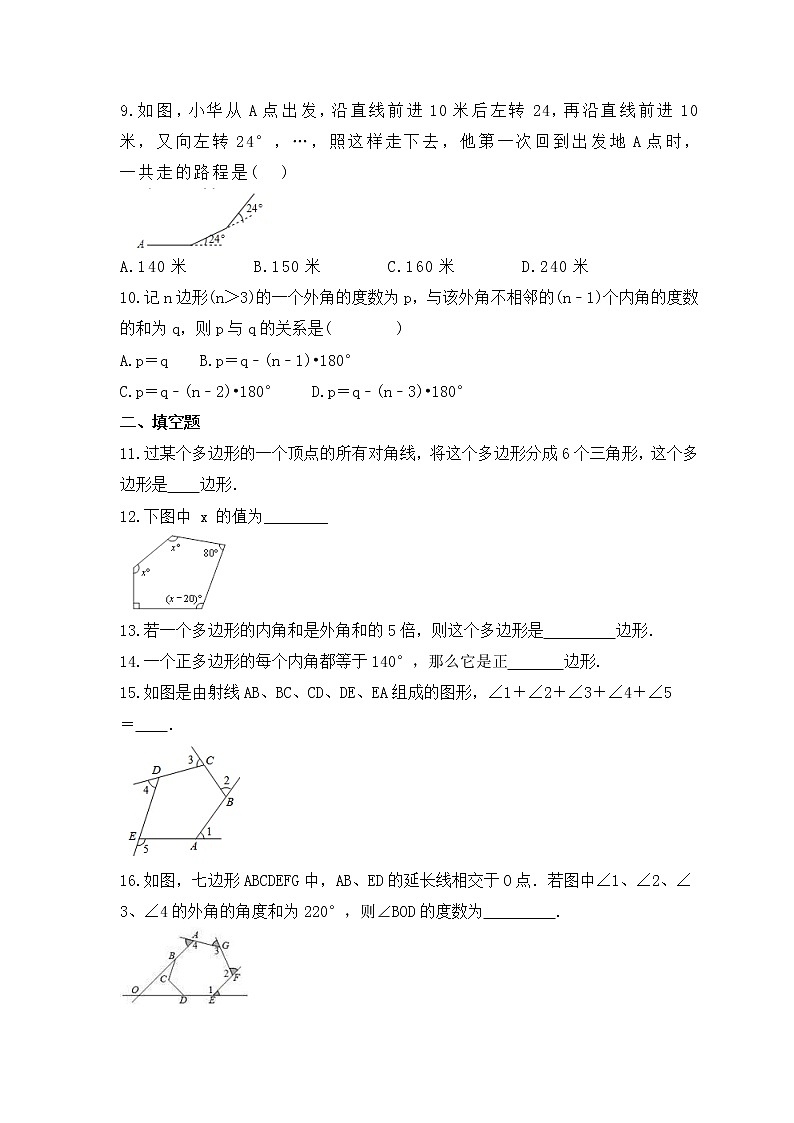 9.如图,小华从A点出发,沿直线前进10米后左转24,再沿直线前进10
米,又向左转24°,…,照这样走下去,他第一次回到出发地A点时,
一共走的路程是( )
24°
24°
A
A.140米 B.150米 C.160米 D.240米
10.记n边形(n＞3)的一个外角的度数为p,与该外角不相邻的(n﹣1)个内角的度数
的和为q,则p与q的关系是( )
A.p＝q B.p＝q﹣(n﹣1)•180°
C.p＝q﹣(n﹣2)•180° D.p＝q﹣(n﹣3)•180°
二、填空题
11.过某个多边形的一个顶点的所有对角线,将这个多边形分成6个三角形,这个多
边形是____边形.
12.下图中 x 的值为________
x°
80°
x°
(x−20)°
13.若一个多边形的内角和是外角和的5倍,则这个多边形是_________边形.
14.一个正多边形的每个内角都等于140°,那么它是正_______边形.
15.如图是由射线AB、BC、CD、DE、EA组成的图形,∠1＋∠2＋∠3＋∠4＋∠5
＝____.
3 C
D
4
2
B
E
5
A
1
16.如图,七边形ABCDEFG中,AB、ED的延长线相交于O点.若图中∠1、∠2、∠
3、∠4的外角的角度和为220°,则∠BOD的度数为_________.
A
4
3 G
B
C
2 F
O
1
D E